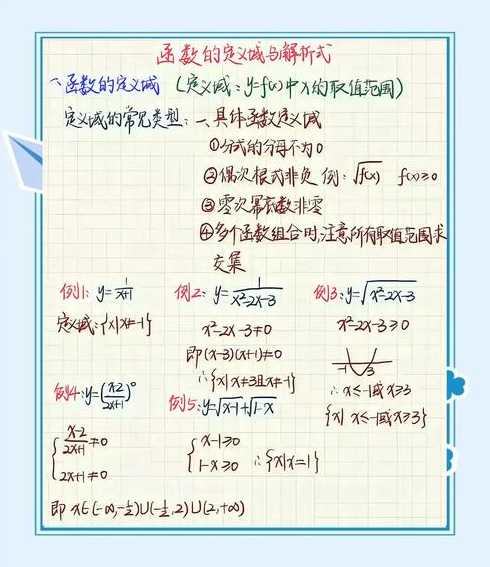 函数的定义域与解析式
一、函数的定义域 (定义域:y=f(x)中x的取值范围)
定义域的常见类型:一、具体函数定义域
①分式的分母不为0
②偶次根式非负 例:√f(x) f(x)≥0
③零次幂底数非零
④多个函数组合时,注意所有取值范围求
交集
例1: y=1/(x+1)
定义域:{x|x≠-1}
例2: y=1/(x²-2x-3)
x²-2x-3≠0
即(x-3)(x+1)≠0
∴{x|x≠3且x≠-1}
例3:y=√(x²-2x-3)
x²-2x-3≥0
-1 3
∴x≤-1或x≥3
{x| x≤-1或x≥3}
例4:y=((x-2)/(2x+1))⁰
{(x-2)/(2x+1)≠0
2x+1≠0
即 x∈(-∞,-1/2)∪(-1/2,2)∪(2,+∞)
例5:y=√(x-1)+√(1-x)
{x-1≥0
1-x≥0 ∴{x|x=1}